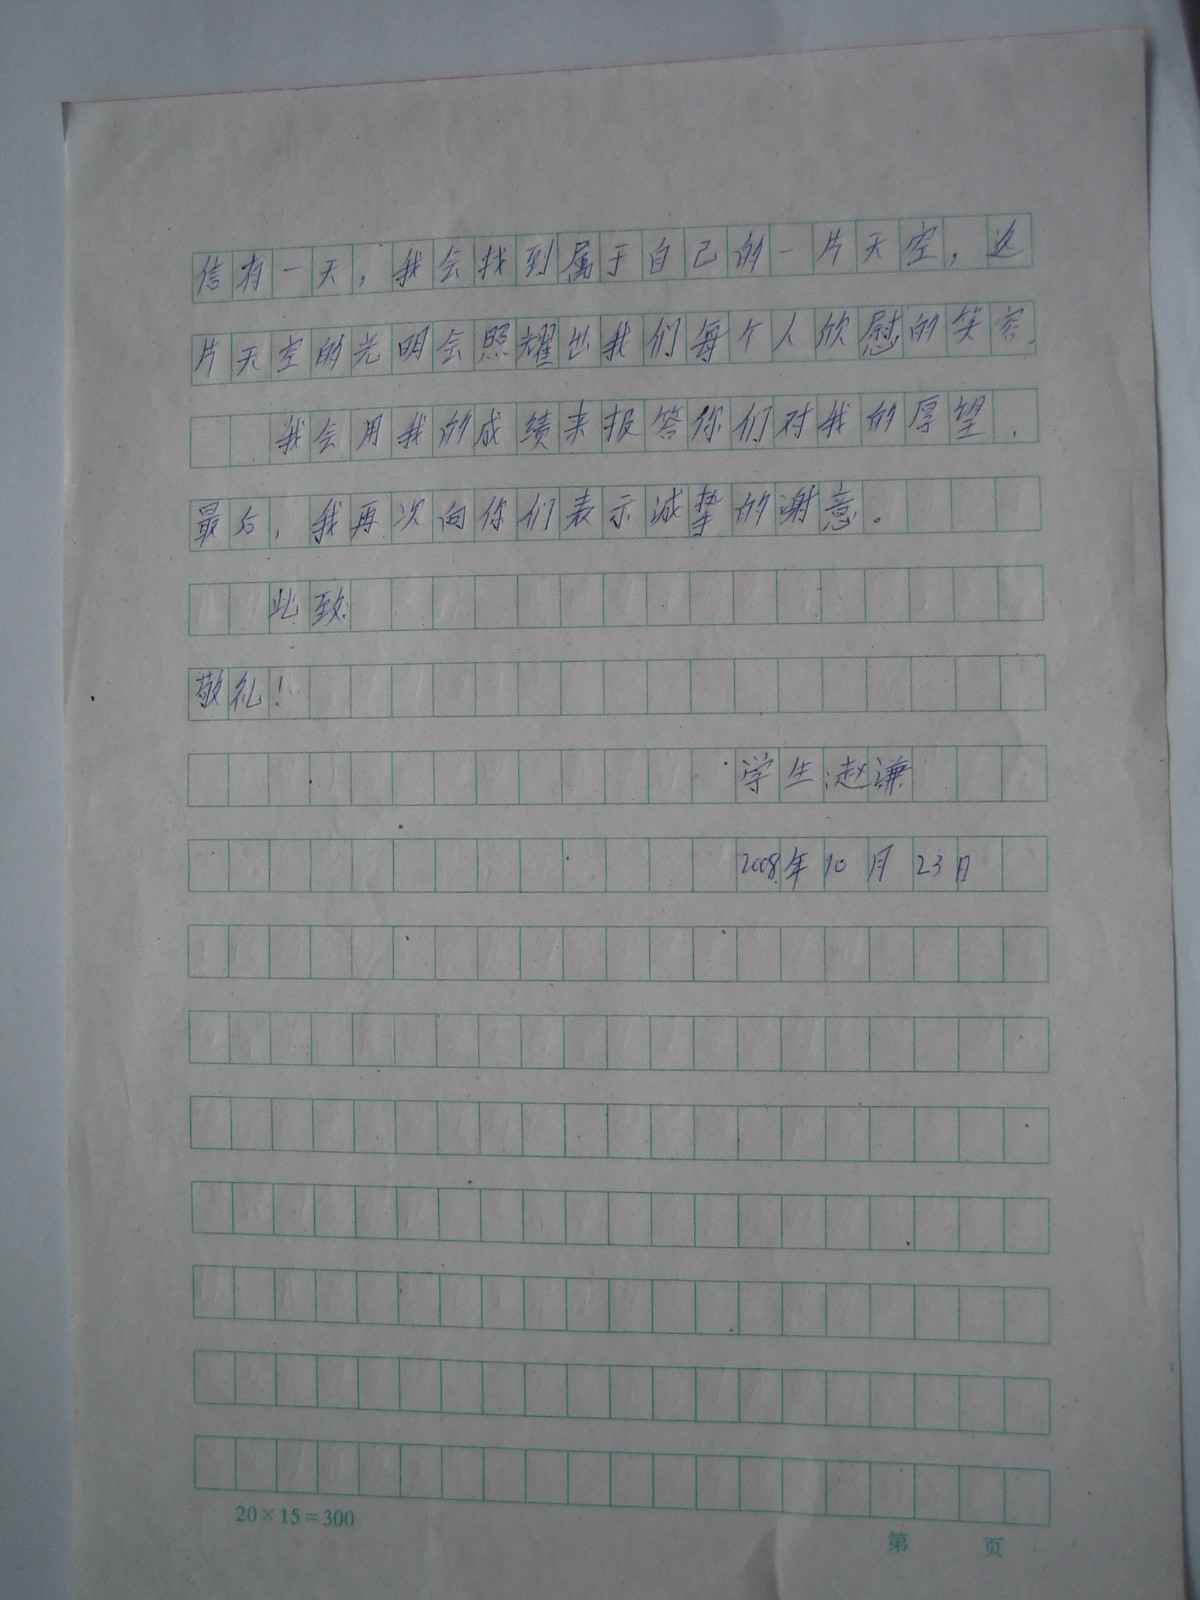 信有一天，我会找到属于自己的一片天空，这
片天空的光明会照耀出我们每个人欣慰的笑容.
我会用我的成绩来报答你们对我的厚望.
最后，我再次向你们表示诚挚的谢意。
此致
敬礼！
学生:赵谦
2008年10月23日
20×15=300
第 页